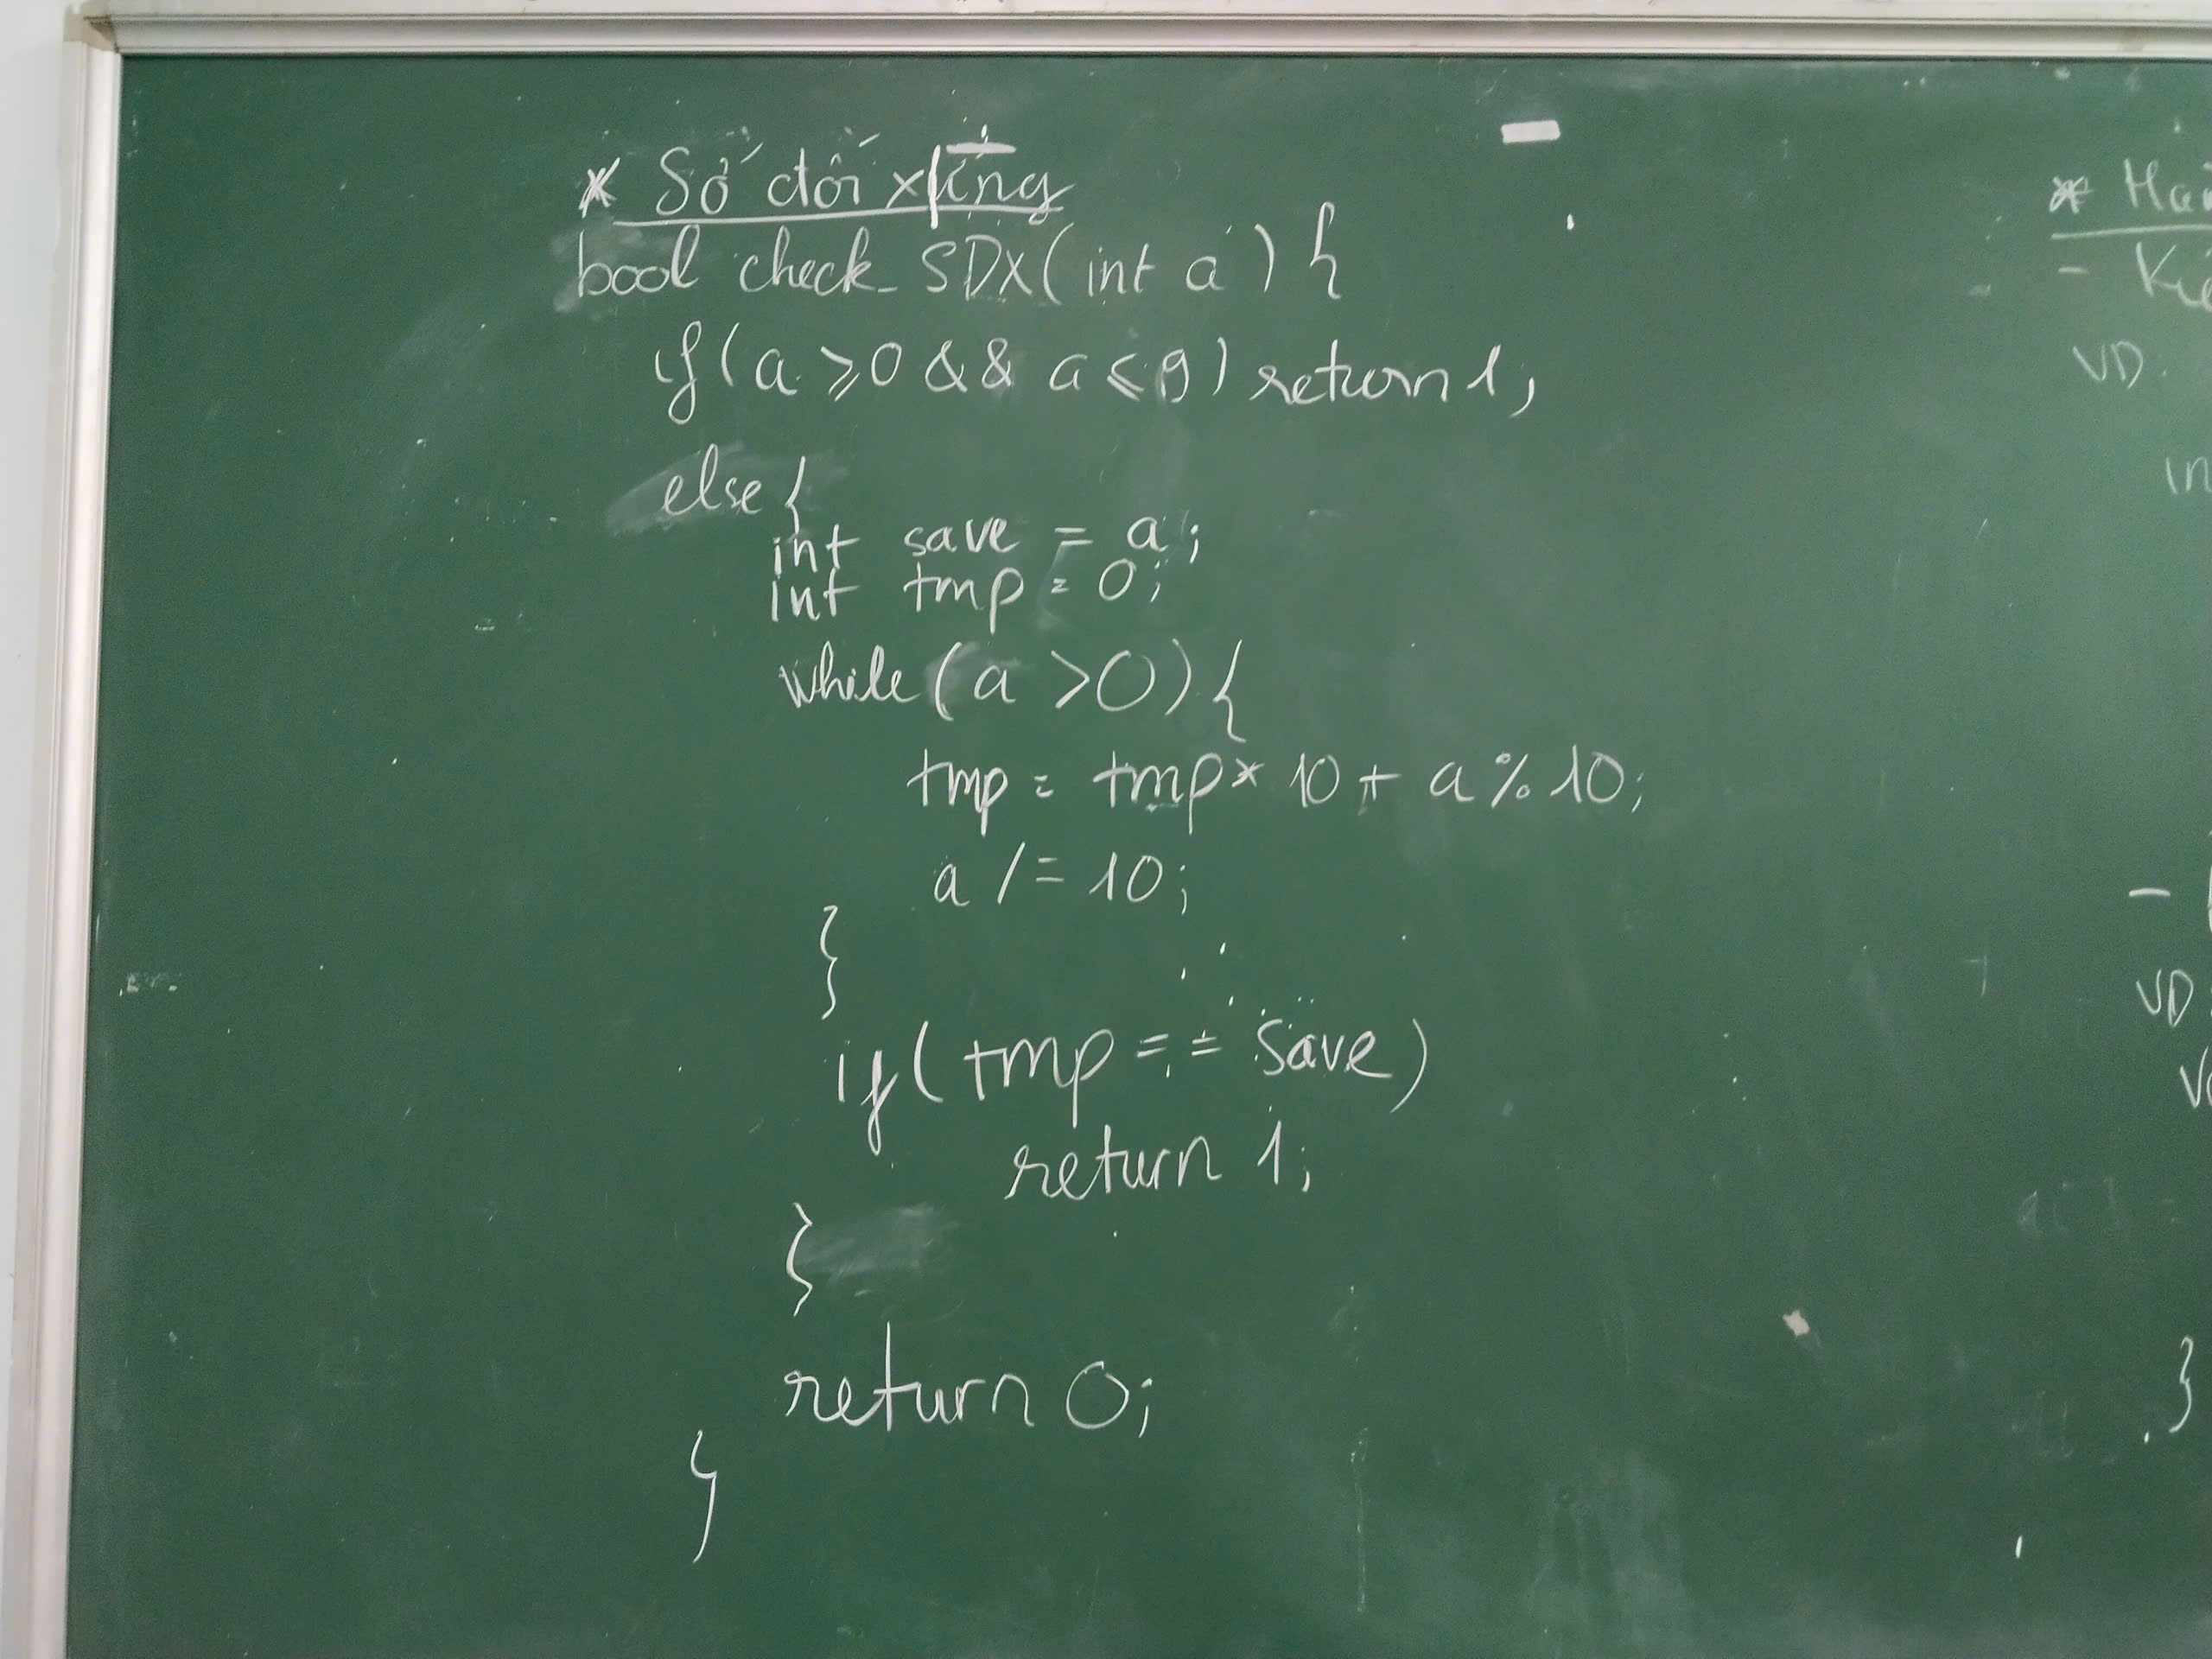 * Số đối xứng
bool check_SDX(int a) {
if(a ⩾ 0 && a ⩽ 9) return 1;
else {
int save = a;
int tmp = 0;
while(a > 0) {
tmp = tmp * 10 + a % 10;
a /= 10;
}
if(tmp == save)
return 1;
}
return 0;
}
*
-
VD:
in
-
VD:
}